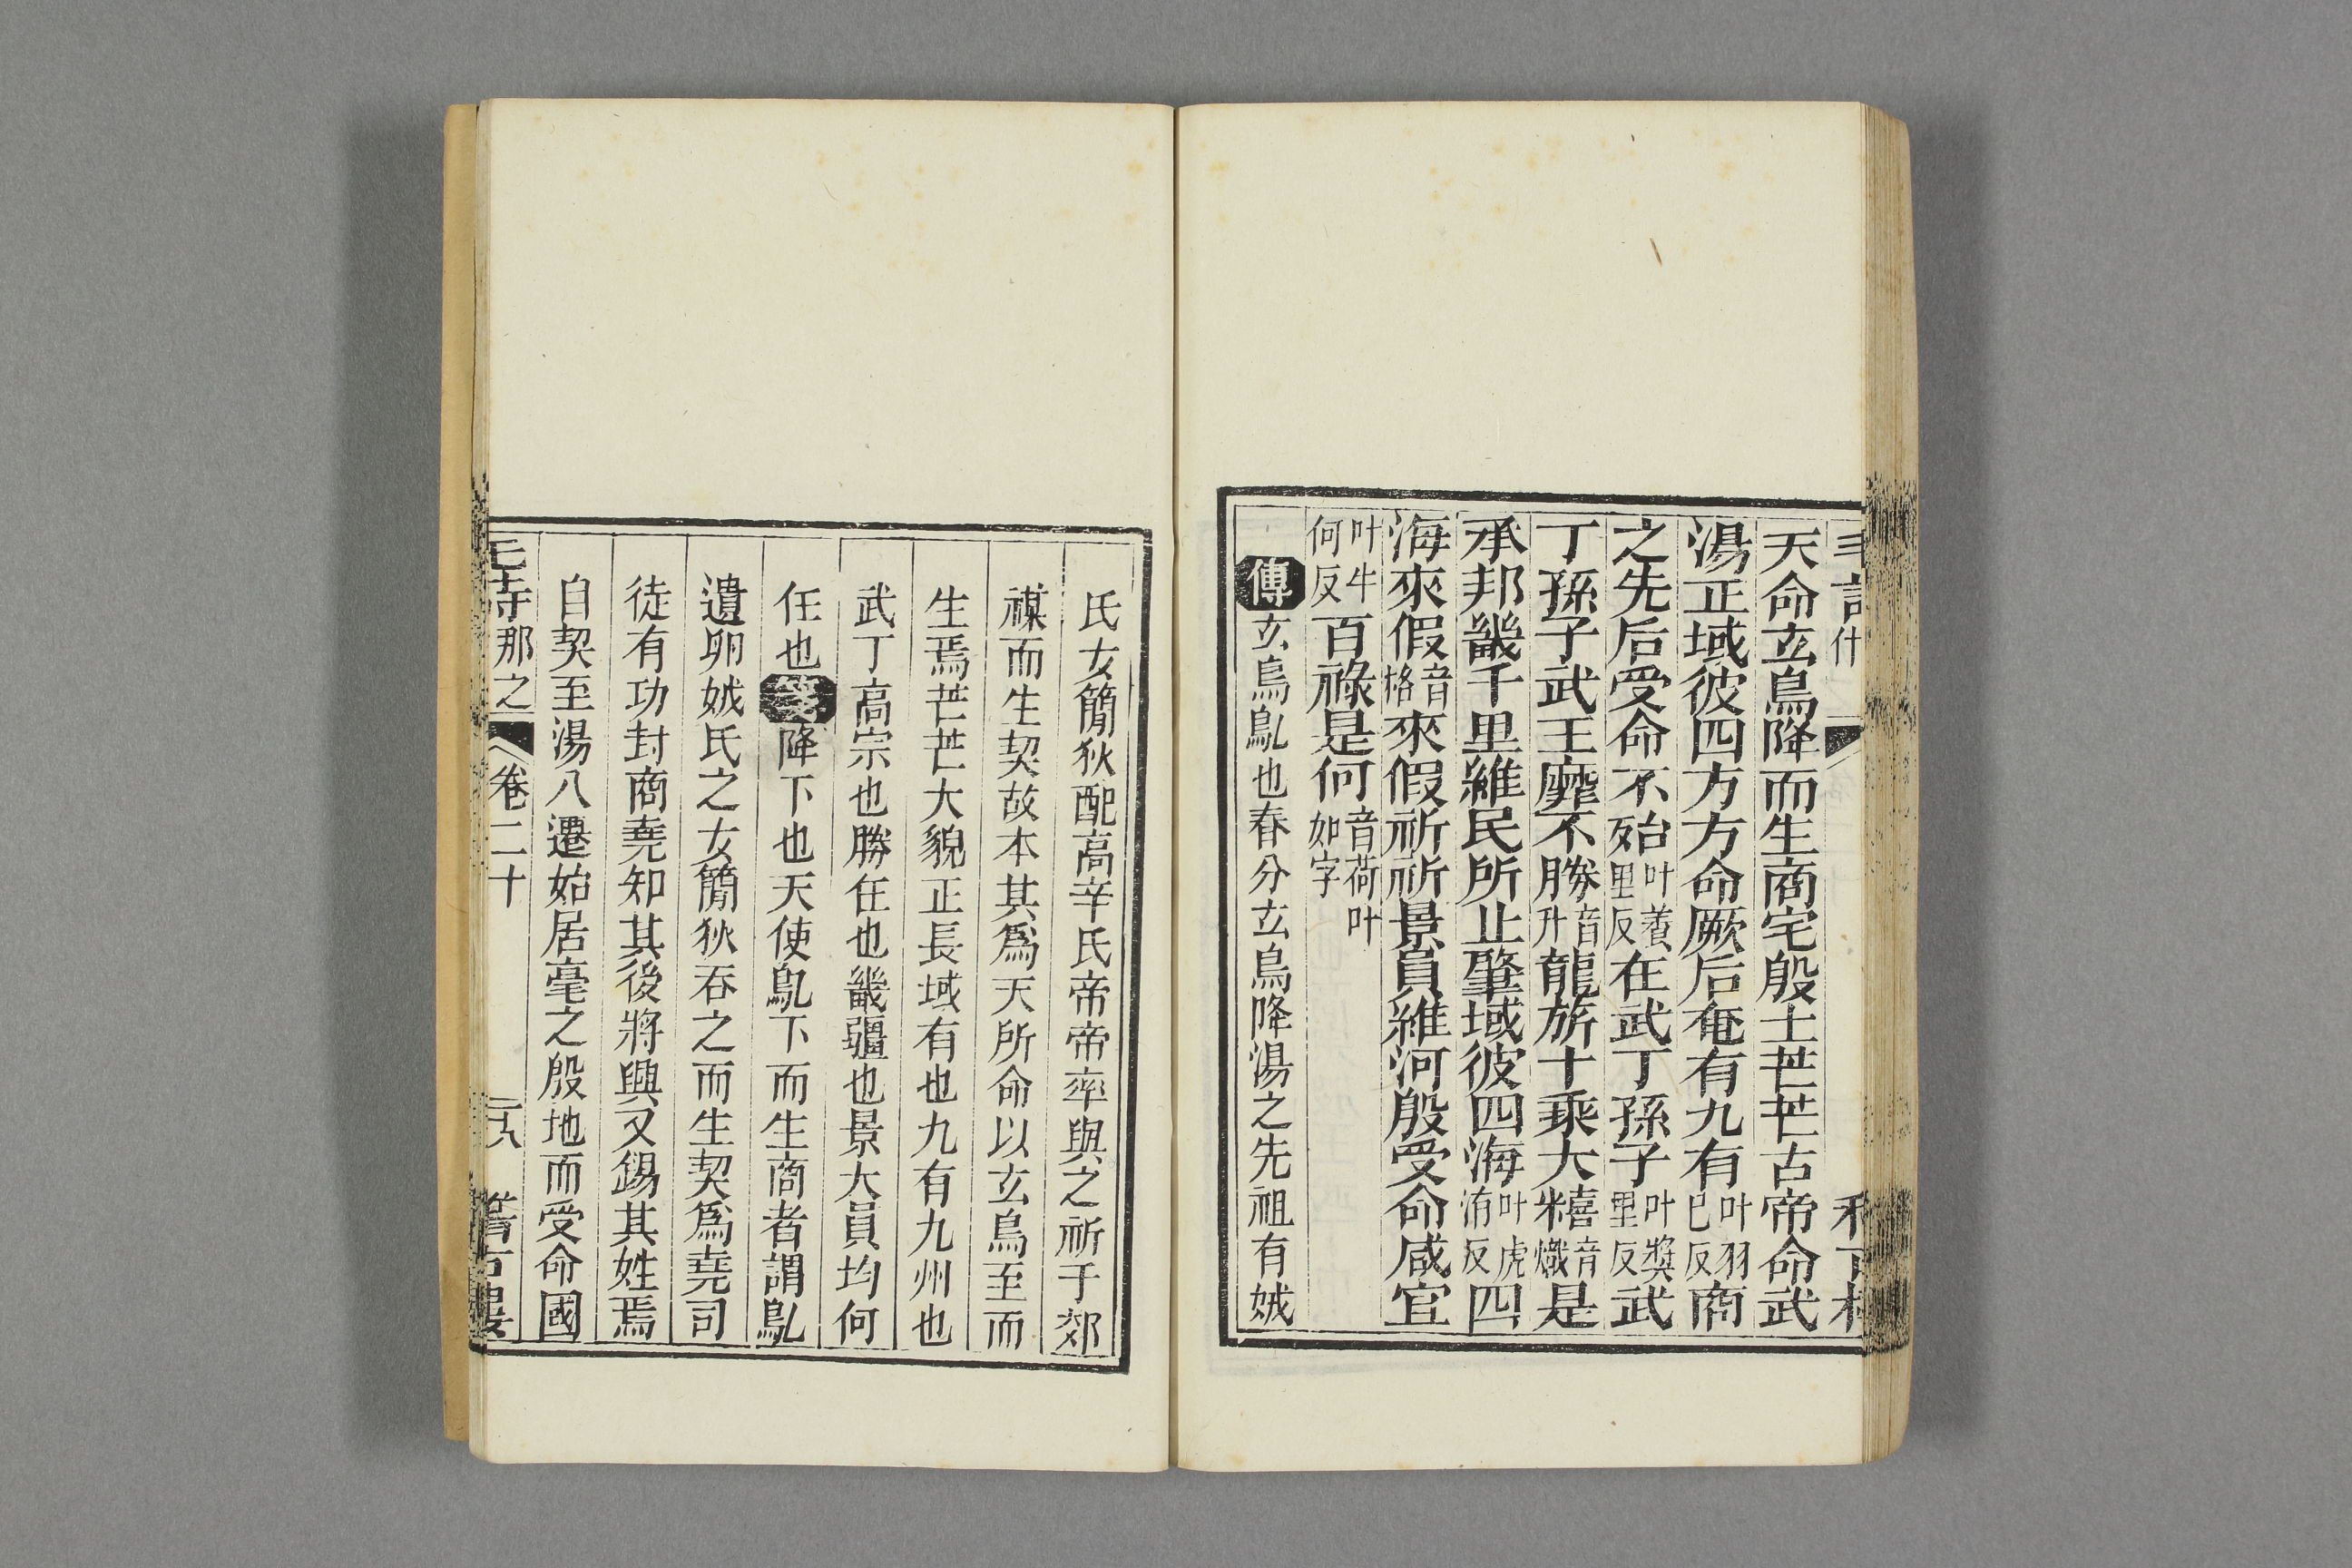 天命玄鳥降而生商宅殷土芒芒古帝命武
湯正域彼四方方命厥后奄有九有叶羽已反商
之先后受命不殆叶養里反在武丁孫子叶奬里反武
丁孫子武王靡不勝音升龍旂十乘大糦音熾是
承邦畿千里維民所止肇域彼四海叶虎洧反四
海來假音格來假祈祈景員維河殷受命咸宜
叶牛何反百祿是何音荷叶如字
傳玄鳥鳦也春分玄鳥降湯之先祖有娀
氏女簡狄配高辛氏帝帝率與之祈于郊
禖而生契故本其爲天所命以玄鳥至而
生焉芒芒大貌正長域有也九有九州也
武丁高宗也勝任也畿疆也景大員均何
任也箋降下也天使鳦下而生商者謂鳦
遺卵娀氏之女簡狄吞之而生契爲堯司
徒有功封商堯知其後將興又錫其姓焉
自契至湯八遷始居亳之殷地而受命國
毛詩那之 卷二十